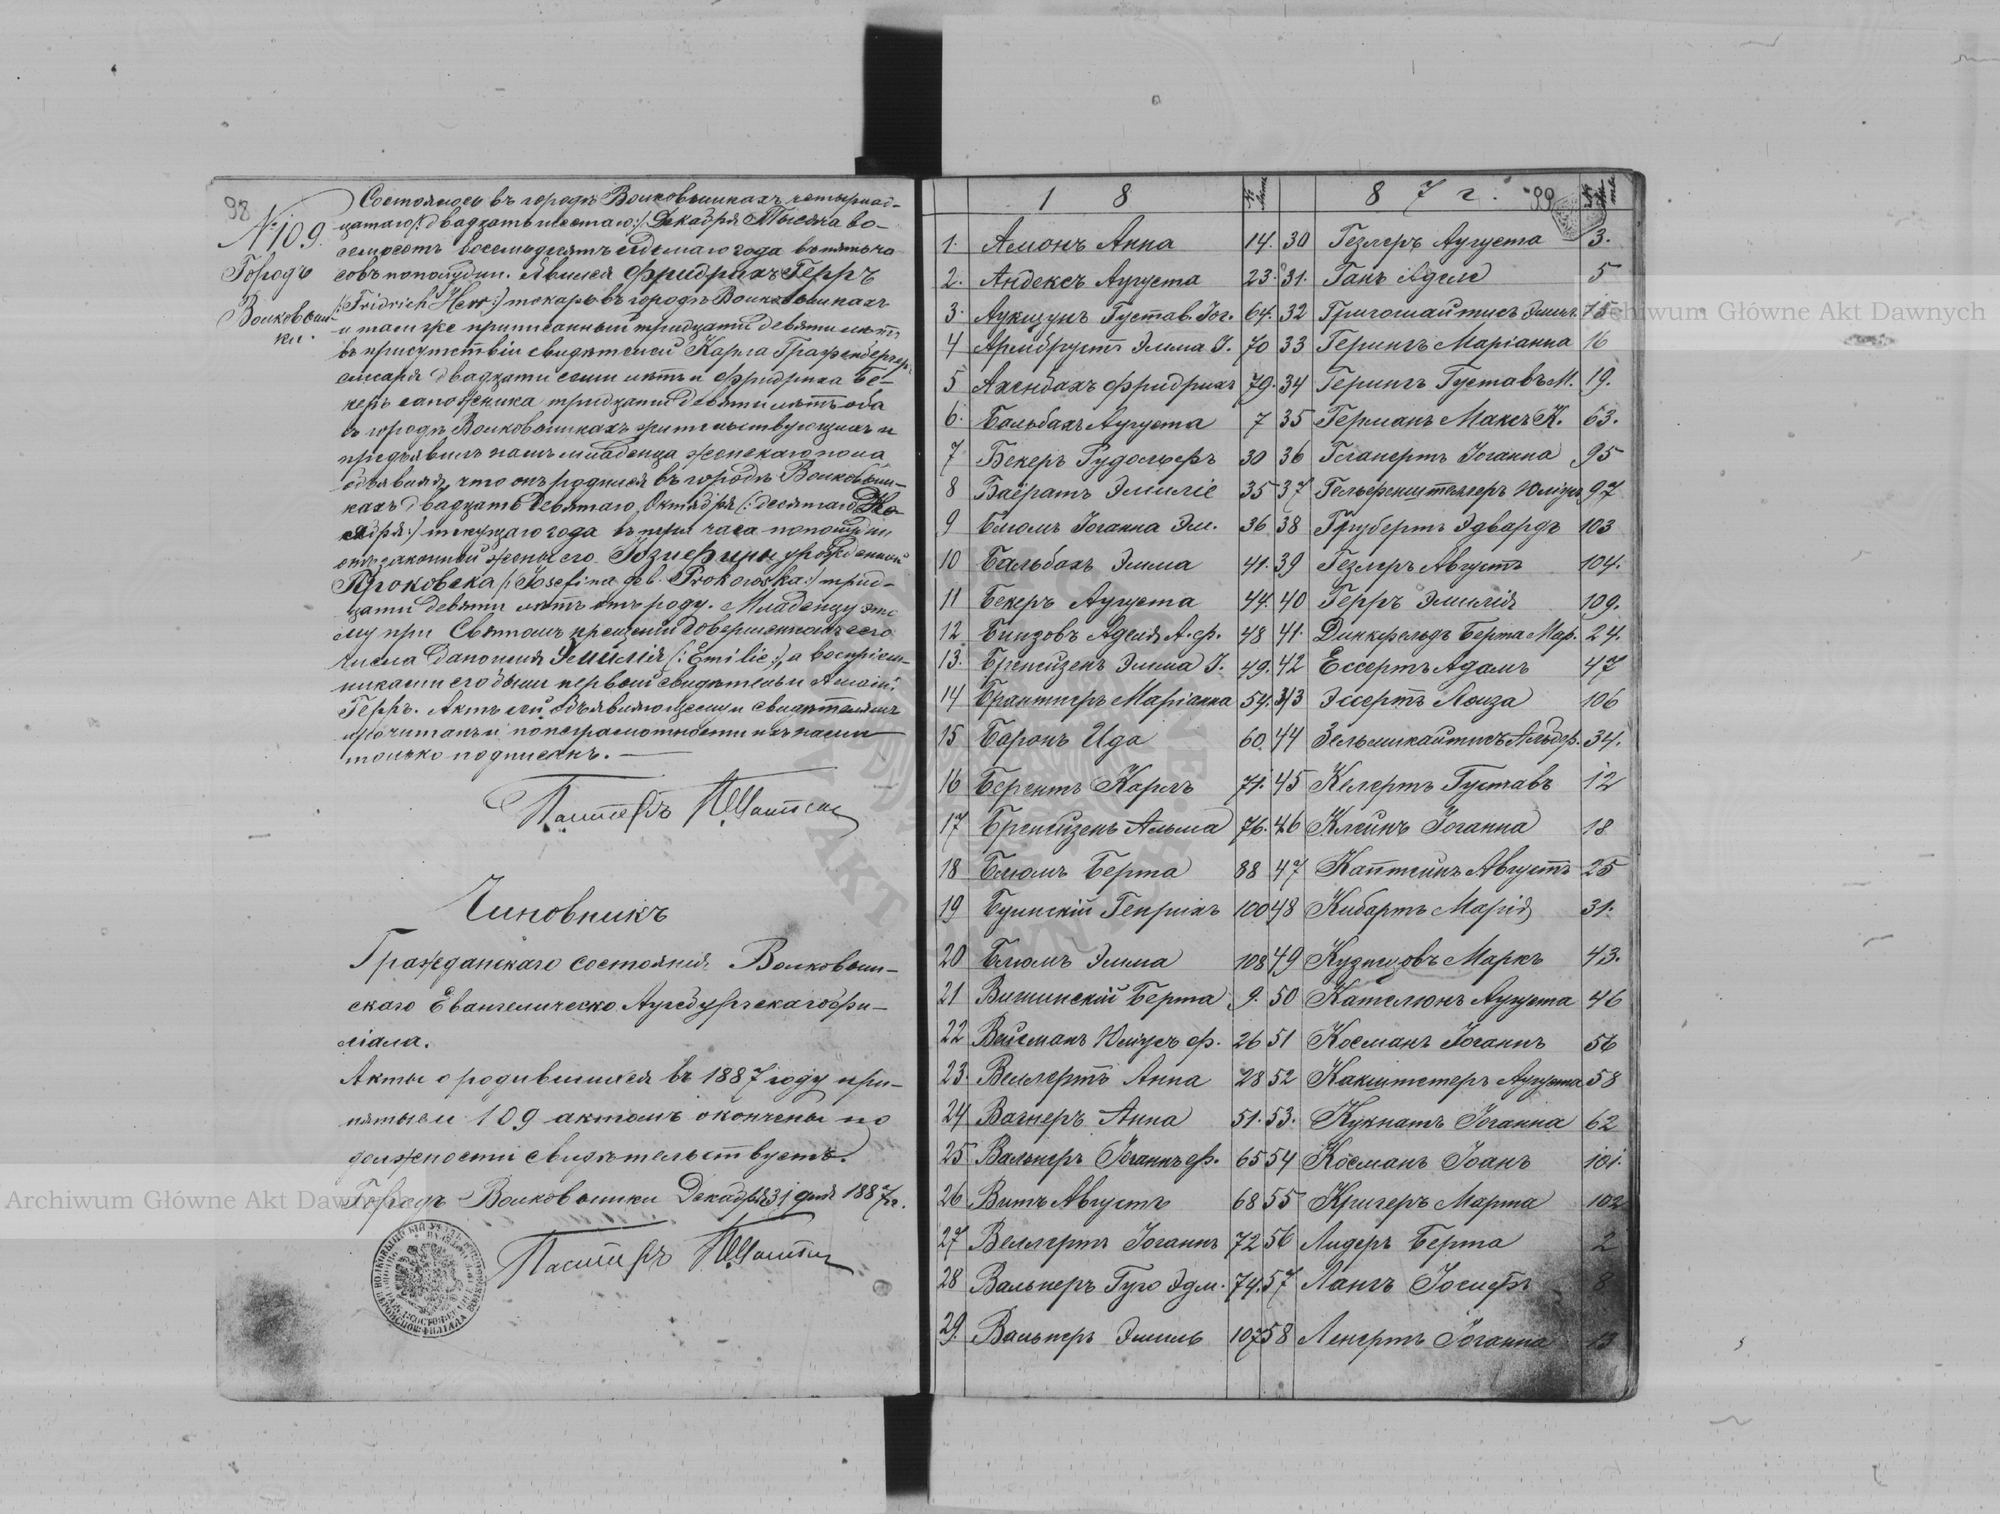 98
№ 109.
Городъ
Волковыш-
ки.
Состоялось въ городѣ Волковышкахъ четырнад-
цатаго /: двадцать шестаго :/ Декабря Тысяча во-
семьсотъ восемьдесятъ седьмаго года въ пять ча
совъ пополудни. Явился Фридрихъ Герръ
/: Fridrich Herr :/ токарь въ городѣ Волковышкахъ
и тамъ же приписанный тридцати девяти лѣтъ
въ присутствіи свидѣтелей Карла
слесаря двадцати семи лѣтъ и Фридриха Бе-
керъ сапожника тридцати девяти лѣтъ оба
въ городѣ Волковышкахъ жительствующихъ и
предъявилъ намъ младенца женскаго пола
объявляя, что онъ родился въ городѣ Волковыш-
кахъ двадцать девятаго Октября /: десятаго Но-
ября :/ текущаго года въ три часа пополудни
отъ законной жены его Іозефины урожденной
Проковска /: Josefina geb. Prokowska :/ трид-
цати девяти лѣтъ отъ роду. Младенцу это
му при Святомъ крещеніи совершенномъ сего
числа дано имя Эмилія /: Emilie :/, а воспріем-
никами его были первый свидѣтель и
Герръ. Актъ сей объявляющему и свидѣтелямъ
прочитанъ и по неграмотности ихъ нами
только подписанъ. —
Пасторъ
Чиновникъ
Гражданскаго состоянія Волковыш-
скаго Евангелическо Аугсбургскаго фи-
ліала.
Акты о родившихся въ 1887 году при-
нятыемъ 109 актомъ окончены по
должности свидѣтельствуетъ.
Городъ Волковышки Декабря 31 дня 1887 г.
Пасторъ
1 8 8 7 г. 99
1. Амонъ Анна 14. 30 Гезлеръ Аугуста 3.
2. Андексъ Аугуста 23. 31. Ганъ Адель 5
3. Аукщунъ Густав. Іог. 64. 32 Григошайтисъ Эмил. 75
4 Армбрустъ Эмма І. 70 33 Герингъ Маріанна 16
5 Ахенбахъ Фридрихъ 79. 34 Герингъ Густавъ М. 19.
6. Бальбахъ Аугуста 7 35 Германъ Максъ К. 63.
7 Бекеръ Рудольфъ 30 36 Іоганна 95
8 Баератъ Эмиліе 35 37 Гельфенштеллеръ Юліусъ 97
9 Блюмъ Іоганна Эм. 36 38 Грубертъ Эдвардъ 103
10 Бальбахъ Эмма 41. 39 Гезлеръ Августъ 104.
11 Бекеръ Аугуста 44. 40 Герръ Эмилія 109.
12 Аделя А. Ф. 48 41. Динкфельдъ Берта Мар. 24.
13. Бренгизенъ Эмма І. 49. 42 Ессертъ Адамъ 47
14 Маріанна 54. 43 Эссертъ Луиза 106
15 Баронъ Ида 60 44 Зельмикайтисъ Альбер. 34.
16 Берентъ Карлъ 71. 45 Келертъ Густавъ 12
17 Бренгизенъ Альма 76. 46 Клейнъ Іоганна 18
18 Блюмъ Берта 88 47 Каптейнъ Августъ 25
19 Генрихъ 100 48 Кибартъ Марія 31.
20 Блюмъ Эмма 108 49 Кузнецовъ Маркъ 43.
21 Вишинскій Берта 9. 50 Кателюнъ Аугуста 46
22 Вейсманъ Юліусъ Ф. 26 51 Косманъ Іоганнъ 56
23. Веллертъ Анна 28 52 Какштетеръ Аугуста 58
24 Вагнеръ Анна 51. 53. Кукнатъ Іоганна 62
25 Вальнеръ Іоганнъ Ф. 65 54 Косманъ Іоанъ 101.
26 Витъ Августъ 68 55 Кригеръ Марта 102
27 Веллертъ Іоганнъ 72 56 Лидеръ Берта 2
28 Вальнеръ Гуго Эдм. 74. 57 Лангъ Іосифъ 8
29. Вальнеръ Эмиль 107 58 Ленертъ Іоганна 13
Archiwum Główne Akt Dawnych
Archiwum Główne Akt Dawnych